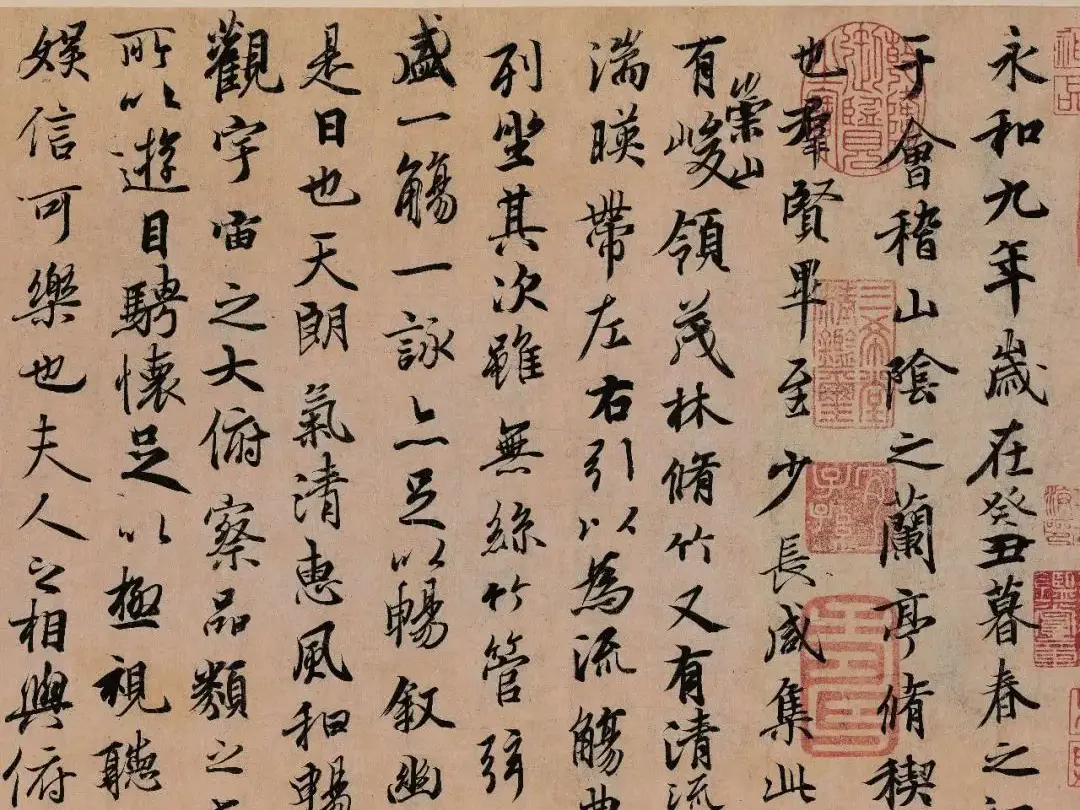 永和九年歲在癸丑暮春之
于會稽山陰之蘭亭脩禊
也羣賢畢至少長咸集此
有崇山峻領茂林脩竹又有清流
湍暎帶左右引以為流觴曲
列坐其次雖無絲竹管弦
盛一觴一詠亦足以暢叙幽
是日也天朗氣清惠風和暢
觀宇宙之大俯察品類之
所以遊目騁懷足以極視聽
娛信可樂也夫人之相與俯
三希堂精鑒璽
宜子孫